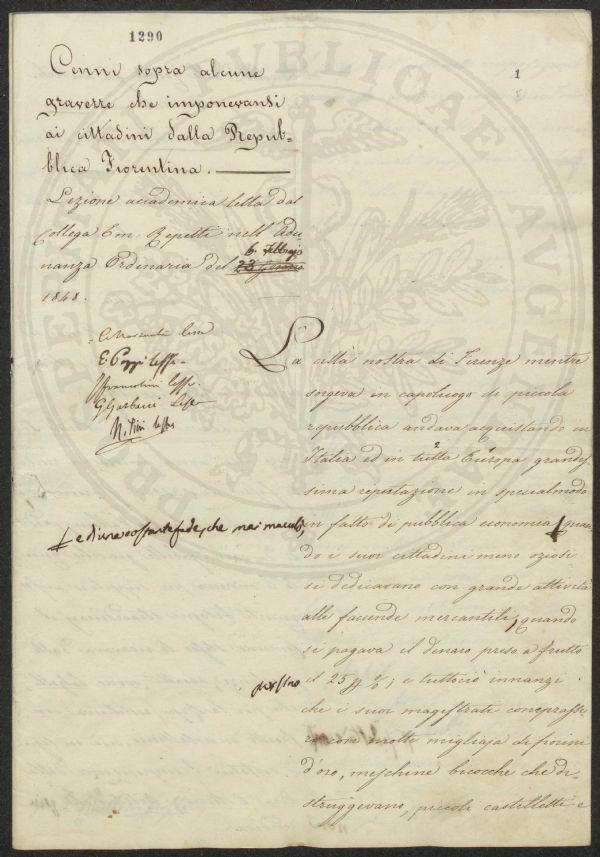 1290
1
Cenni sopra alcune
gravezze che imponevansi
ai cittadini dalla Repub=
blica Fiorentina.
Lezione accademica letta dal
Collega Em. Repetti nell'Adu
nanza Ordinaria del 23 Gennaio
6. Febbrajo
1848.
E Poggi lesse
Francolini lesse
G Garbacci Lesse
La città nostra di Firenze mentre
sorgeva in capoluogo di piccola
repubblica andava acquistando in
Italia ed in tutta Europa grandis
sima riputazione in specialmodo
in fatto di pubblica economia, quan
e di una costante fede, che mai macolò,
do i suoi cittadini meno oziosi
si dedicavano con grande attività
alle faccende mercantili; quando
si pagava il denaro preso a frutto
persino
il 25 p %; e tuttociò innanzi
che i suoi magistrati comprasse
ro con molte migliaja di fiorini
d'oro, meschine bicocche che di
struggevano, piccoli castelletti e